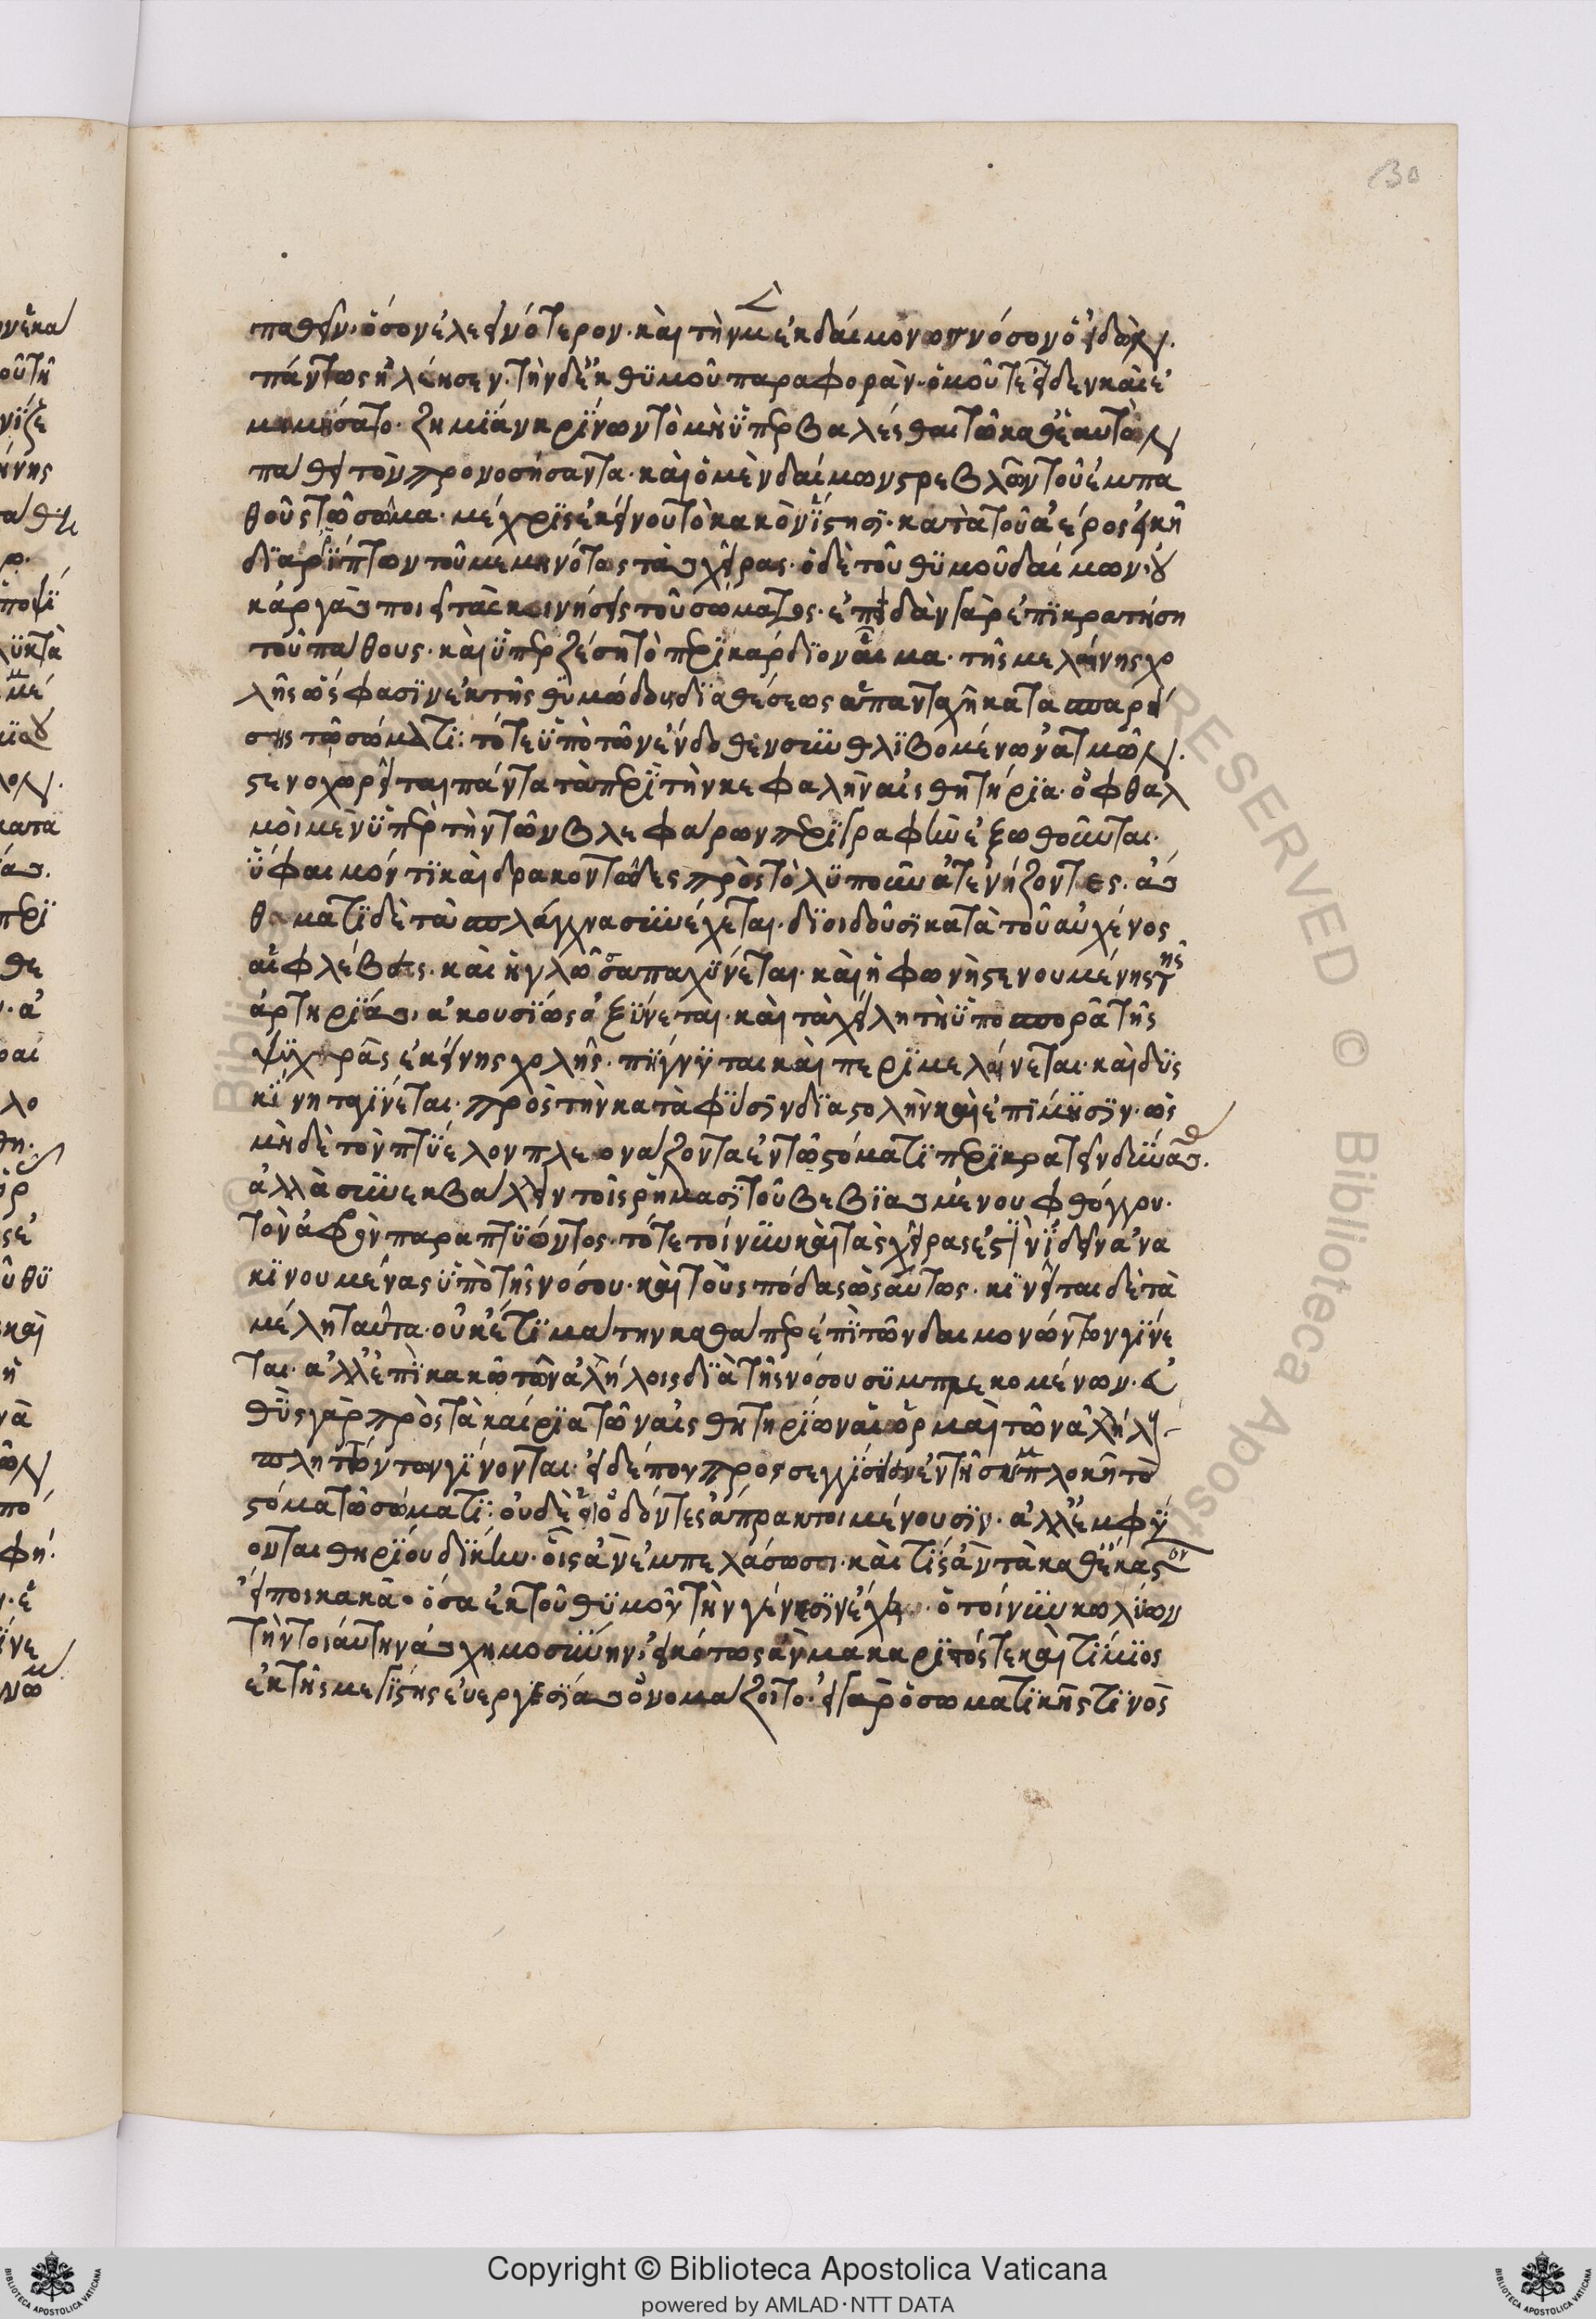 130
παθεῖν· ὅσον ἐλεεινότερον· καὶ τὴν μὲν ἐκ δαίμονων νόσον ὁ εἰδὼς.
πάντως ἠλέησεν· τὴν δὲ ἐκ θϋμοῦ παραφορὰν· ὁμοῦ τε εἶδεν καὶ ἐ
μιμήσατο· ζημίαν κρίνων τὸ μὴ ὑπερβαλέσθαι τῶ καθ' ἑαυτὸν
πάθει τὸν προνοσήσαντα· καὶ ὁ μὲν δαίμων στρεβλῶν τοῦ ἐμπα
θοῦς τὸ σῶμα· μέχρις ἐκείνου τὸ κακὸν ἵστησϊ· κατὰ τοῦ ἀέρος εἰκῆ
διαρίπτων τοῦ μεμηνότος τὰς χεῖρας· ὁ δὲ τοῦ θϋμοῦ δαίμων οὐ
κ ἀργὰς ποιεῖται κινήσεις τοῦ σώματος· ἐπειδὰν γὰρ ἐπικρατήση
τοῦ πάθους· καὶ ὑπερζέση τὸ περικάρδιον αἷμα· τῆς μελαίνης χο
λῆς ὥς φασιν ἐκ τῆς θυμώδους διαθέσεως ἁπανταχῆ κατασπαρεί
σης τῶ σώματι· τότε ὑπὸ τῶν ἔνδοθεν συνθλιβομένων ἀτμῶν.
στενοχωρεῖται πάντα τὰ περὶ τὴν κεφαλὴν αἰσθητήρια· ὀφθαλ
μοὶ μὲν ὑπὲρ τὴν τῶν βλεφάρων περιγραφὴν ἐξωθοῦνται·
ὕφαιμόν τι καὶ δρακοντῶδες πρὸς τὸ λυποῦν ἀτενίζοντες· ἄσ
θματι δὲ τὰ σπλάγχνα συνέχεται· διοιδοῦσι κατὰ τοῦ αὐχένος
αἱ φλέβες· καὶ ἡ γλῶσσα παχύνεται· καὶ ἡ φωνὴ στενουμένης τῆς
ἀρτηρίας, ἀκουσίως ὀξύνεται· καὶ τὰ χείλη τῆ ὑποσπορᾶ τῆς
ψϋχρᾶς ἐκείνης χολῆς· πήγνυται καὶ περιμελαίνεται· καὶ δυς
κίνητα γίνεται· πρὸς τὴν κατὰ φύσιν διαστολὴν καὶ ἐπίμυσιν· ὡς
μηδὲ τὸν πτύελον πλεονάζοντα ἐν τῶ στόματι περικρατεῖν δύνασθ.
ἀλλὰ συνεκβάλλειν τοῖς ῥήμασι τοῦ βεβιασμένου φθόγγου·
τὸν ἀφρὸν παραπτύοντος· τότε τοίνυν καὶ τὰς χεῖρας ἔστιν ἰδεῖν ἀνα
κινουμένας ὑπὸ τῆς νόσου· καὶ τοὺς πόδας ὡσαύτως· κινεῖται δὲ τὰ
μέλη ταῦτα· οὐκέτι μάτην καθάπερ ἐπὶ τῶν δαιμονώντων γίνε
ται· ἀλλ' ἐπὶ κακῶ τῶν ἀλλήλοις διὰ τῆς νόσου συμπλεκομένων· εὐ
θὺς γὰρ πρὸς τὰ καίρια τῶν αἰσθητηρίων αἱ ὁρμαὶ τῶν ἀλλήλους
πληττόντων γίνονται· εἰ δέ που προσεγγίσειεν ἐν τῆ συμπλοκῆ τὸ
στόμα τῶ σώματι· οὐδὲ οἱ ὀδόντες ἄπρακτοι μένουσιν· ἀλλ' ἐμφύ
ονται θηρίου δίκην· οἷς ἂν ἐμπελάσωσι· καὶ τίς ἂν τὰ καθ' ἕκαστον
εἴποι κακά· ὅσα ἐκ τοῦ θυμοῦ τὴν γένεσιν ἔχει· ὁ τοίνυν κωλύων
τὴν τοιαύτην ἀσχημοσύνην, εἰκότως ἂν μακαριστός τε καὶ τίμιος
ἐκ τῆς μεγίστης εὐεργεσίας ὀνομάζοιτο· εἰ γὰρ ὁ σωματικῆς τινὸς
Copyright © Biblioteca Apostolica Vaticana
powered by AMLAD·NTT DATA